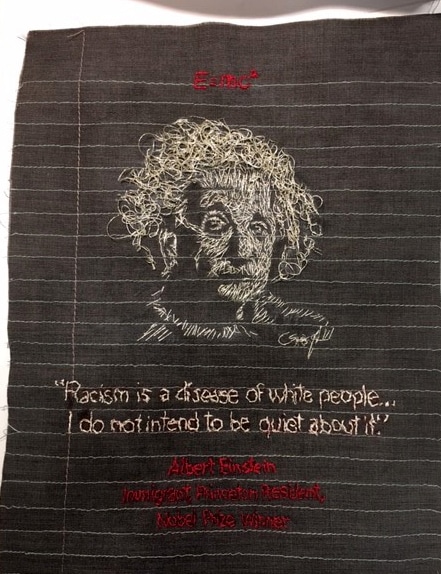 E=mc²
"Racism is a disease of white people...
I do not intend to be quiet about it."
Albert Einstein
Immigrant, Princeton Resident,
Nobel Prize Winner